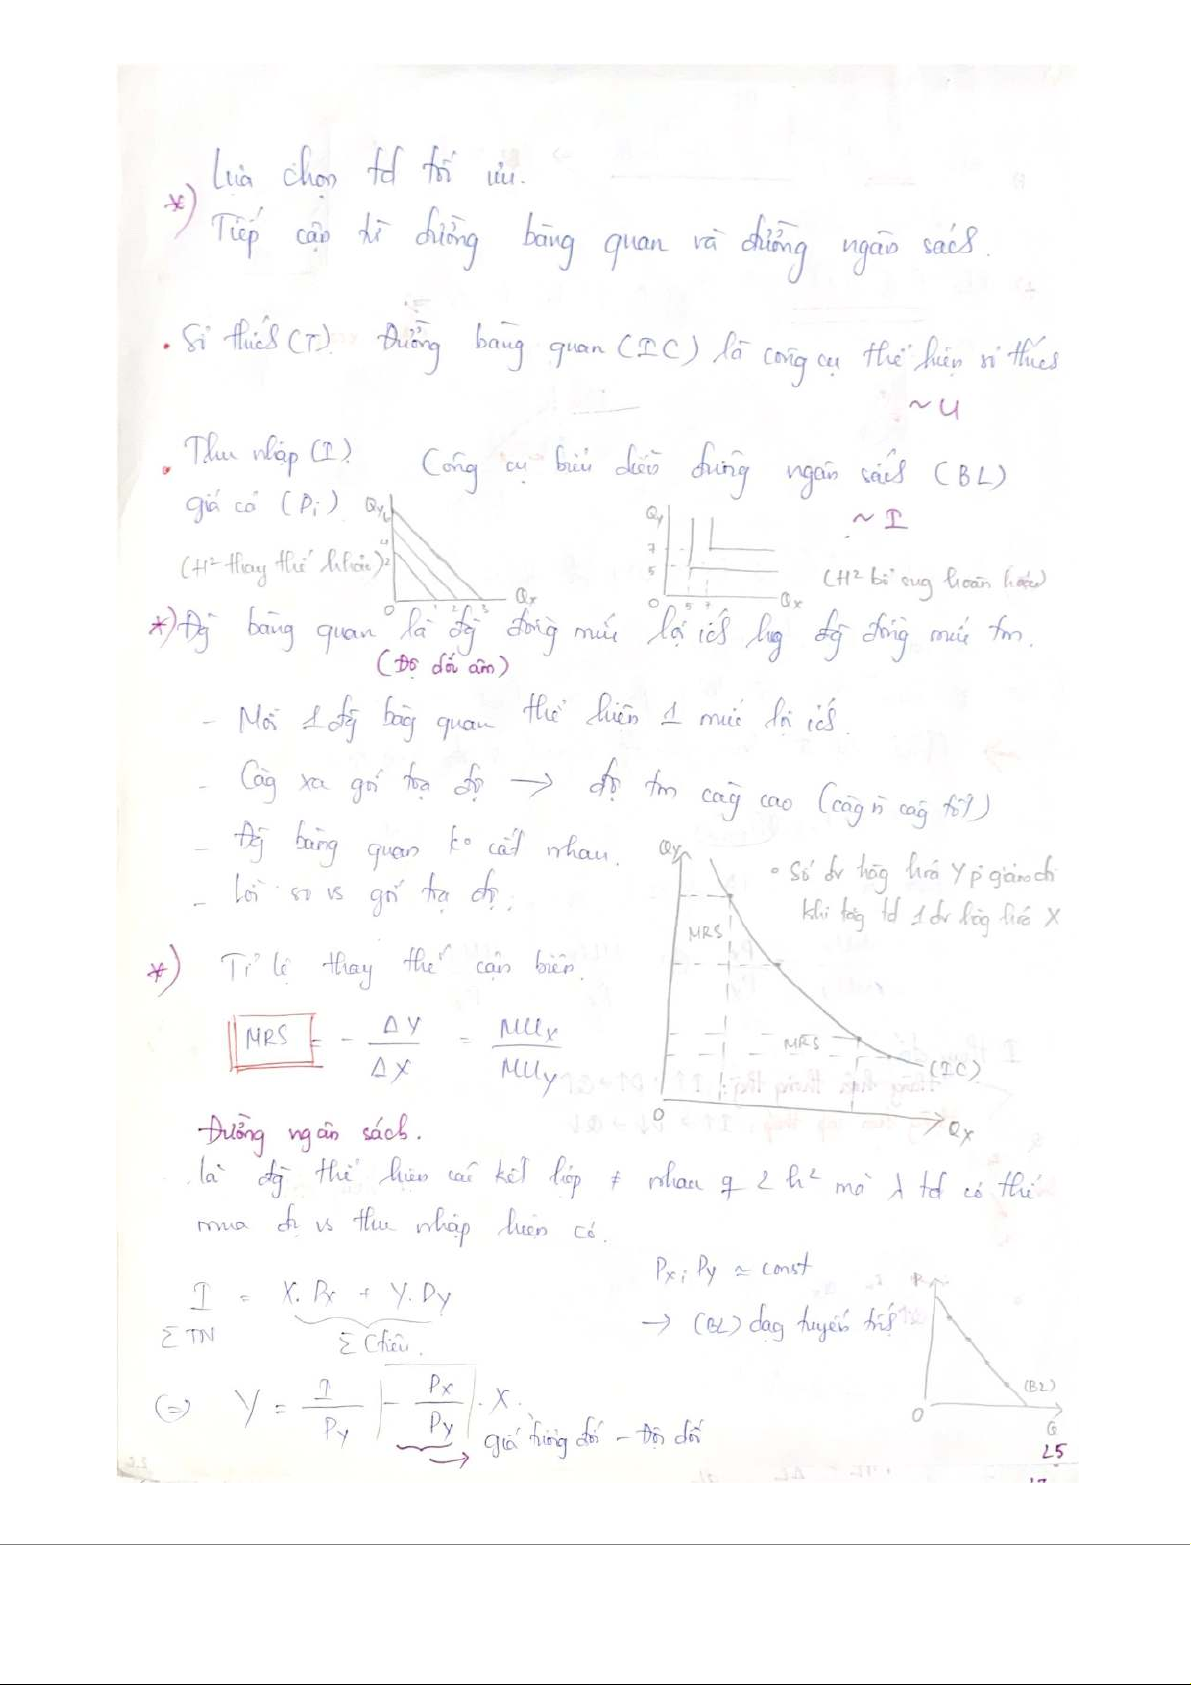 Lựa chọn td tối ưu.
*) Tiếp cận từ đường bàng quan và đường ngân sách.
• Sở thích (T). Đường bàng quan (IC) là công cụ thể hiện sở thích
~ U
• Thu nhập (I) Công cụ biểu diễn đường ngân sách (BL)
giá cả (Pi) ~ I
Qy
4
2
0 1 2 3 Qx
(H² thay thế hoàn hảo)
Qy
7
5
0 5 7 Qx
(H² bổ sung hoàn hảo)
*) Đg bàng quan là đg đồng mức lợi ích hay đg đồng mức tm.
(Độ dốc âm)
- Mỗi 1 đg bàg quan thể hiện 1 mức lợi ích.
- Càg xa gốc tọa độ → độ tm càg cao (càg n càg tốt)
- Đg bàng quan k° cắt nhau.
- Lồi so vs gốc tọa độ.
Qy
MRS
MRS
(IC)
0 Qx
• Số đv hàg hoá Y p giảm đi
khi tăg td 1 đv hàg hoá X
*) Tỉ lệ thay thế cận biên.
MRS = - ΔY/ΔX = MUx/MUy
Đường ngân sách.
là đg thể hiện các kết hợp ≠ nhau q 2 h² mà λ td có thể
mua đc vs thu nhập hiện có.
I = X.Px + Y.Py
Σ TN Σ Chi tiêu.
Px, Py = const
→ (BL) dạg tuyến tính
(BL)
0
(=) Y = I/Py - Px/Py . X.
→ giá tương đối - Độ dốc
25